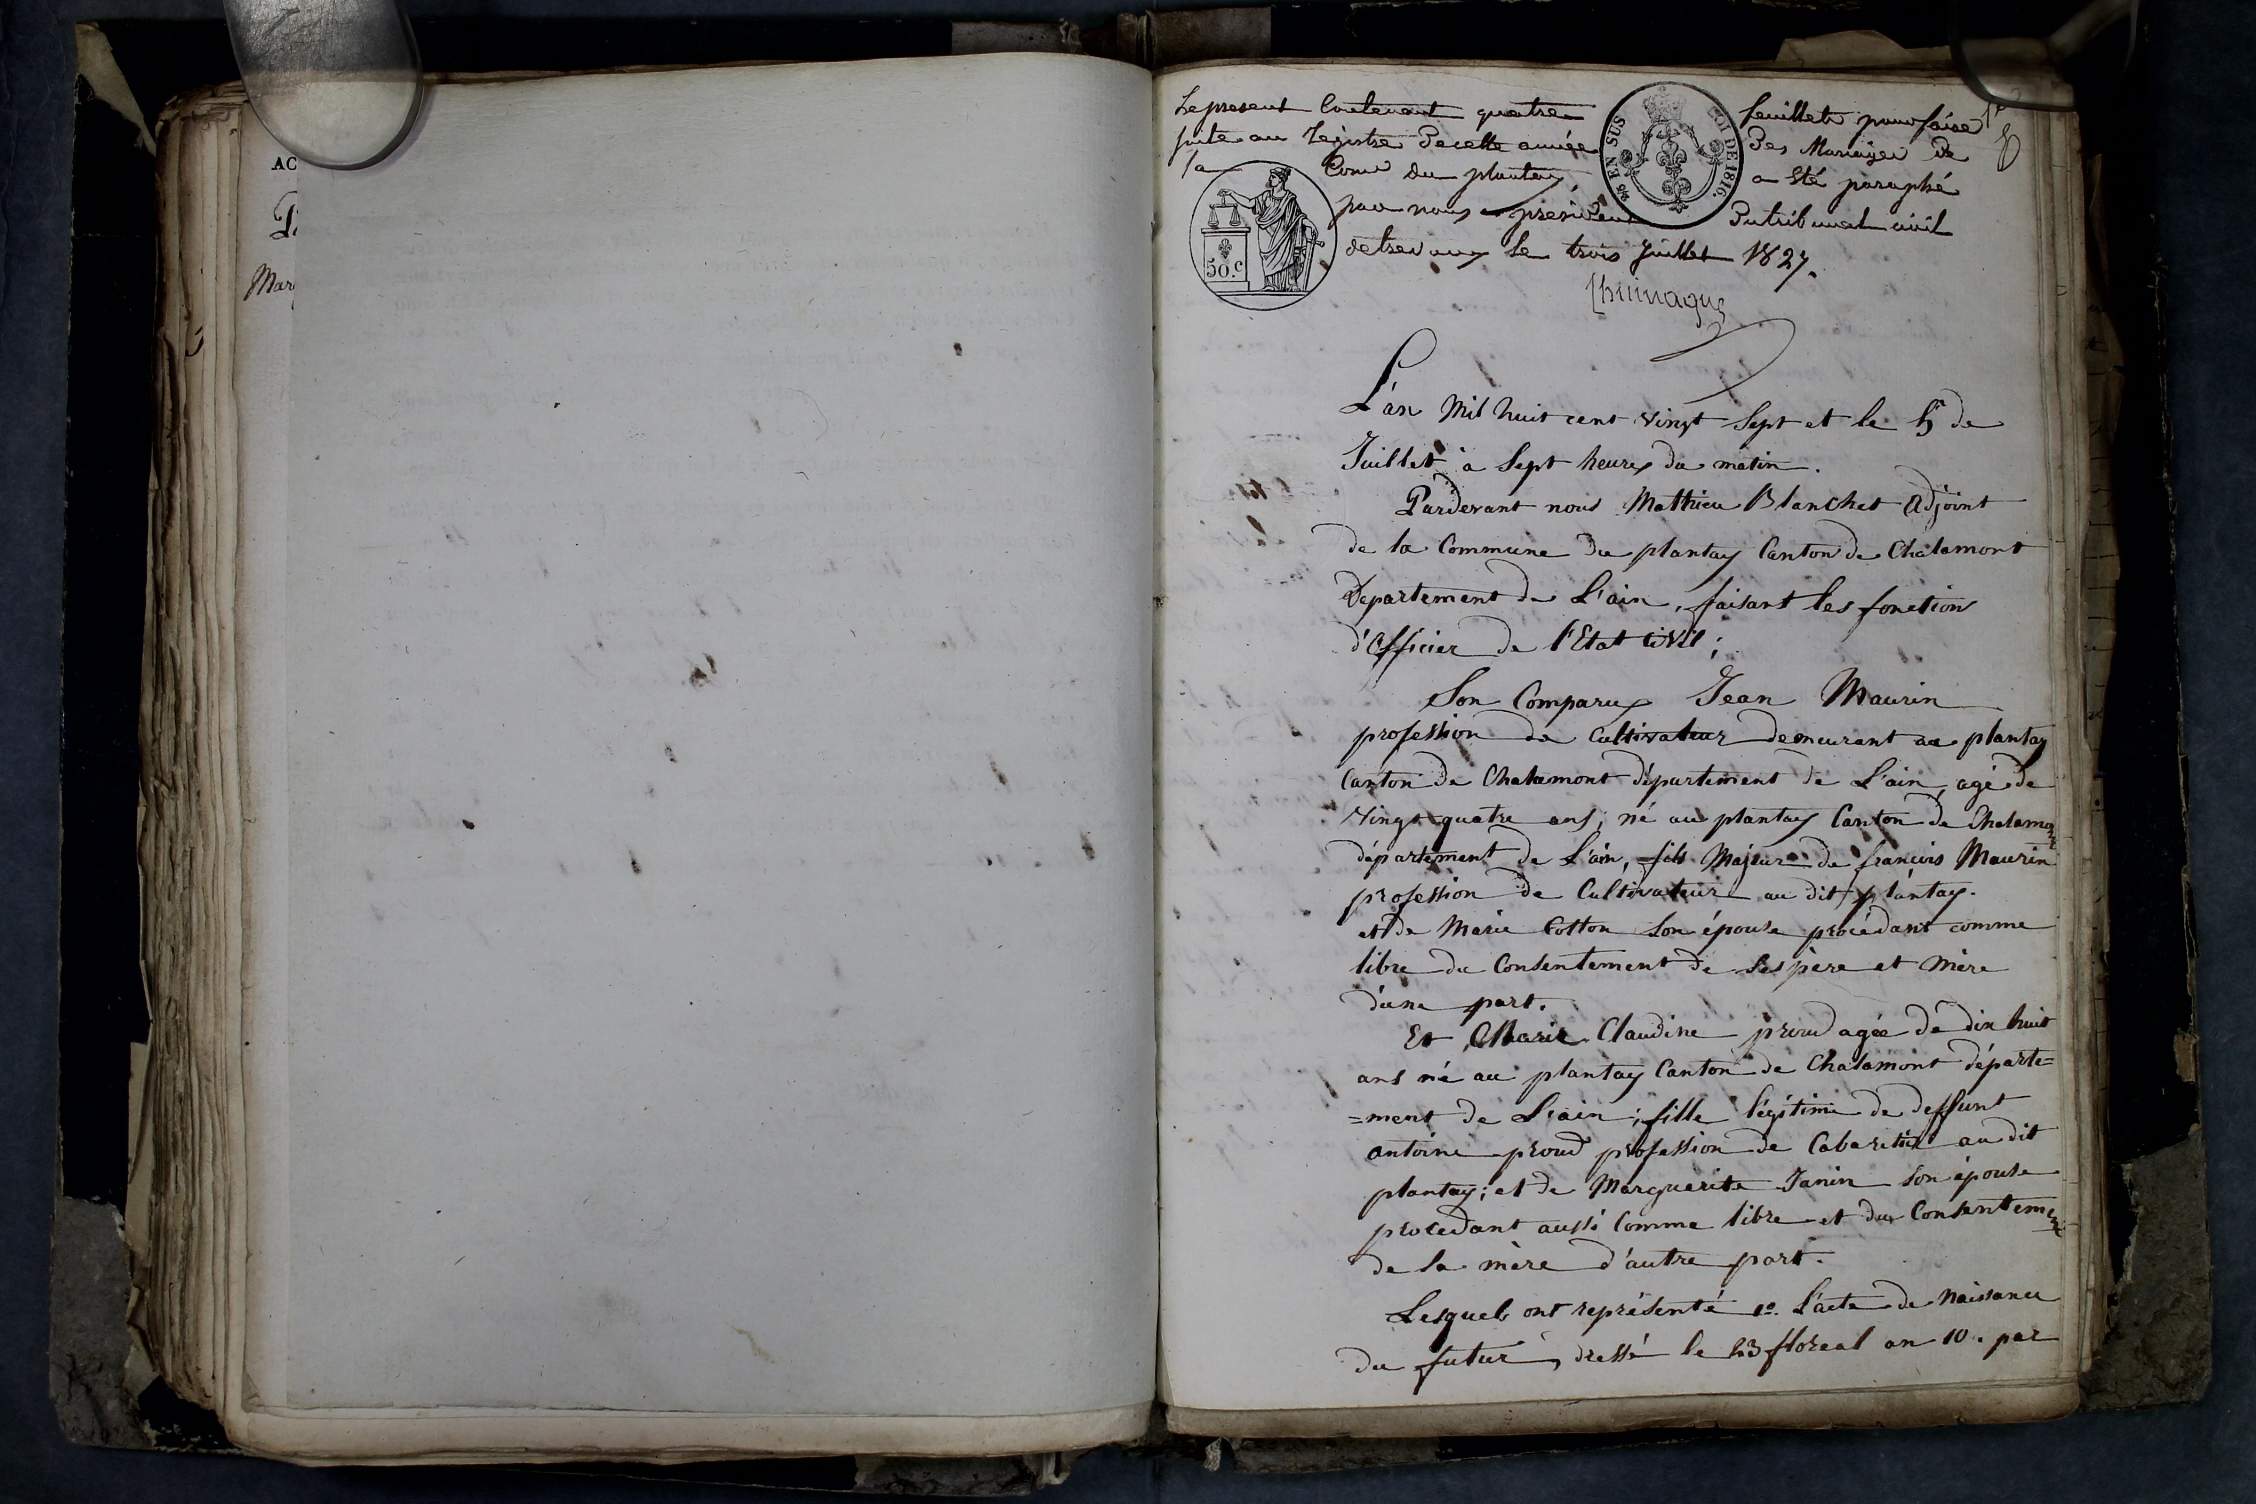 AC
Mar
Le present Contenant quatre feuillets pour faire
suite au Registre de cette année des Mariages de
la Comᵉ du plantay a été paraphé
par nous president du tribunal civil
de trevoux le trois Juillet 1827.
2/10 EN SUS LOI DE 1816.
50.c
L'an Mil huit cent vingt Sept et le 5 de
Juillet à Sept heures du matin.
Pardevant nous Mathieu Blanchet Adjoint
de la Commune du plantay Canton de Chalamont
Département de L'ain, faisant les fonction
d'Officier de l'Etat Civil;
Son Comparus Jean Maurin
profession de Cultivateur demeurant au plantay
Canton de Chalamont département de L'ain, agé de
Vingt quatre ans, né au plantay Canton de Chalamont
département de L'ain, fils Majeur de françois Maurin
profession de Cultivateur au dit plantay.
et de Marie Cotton son épouse procédant comme
libre du Consentement de Ses père et Mère
d'une part.
Et Marie Claudine proud agée de dix huit
ans né au plantay Canton de Chalamont départe=
=ment de L'ain; fille légitime de deffunt
antoine proud profession de Cabaretier au dit
plantay; et de Marguerite Janin Son épouse
procedant aussi Comme libre et du Consentement
de la mère d'autre part.
Lesquels ont représenté 1o. L'acte de Naissance
du futur, dressé le 23 floreal an 10. par